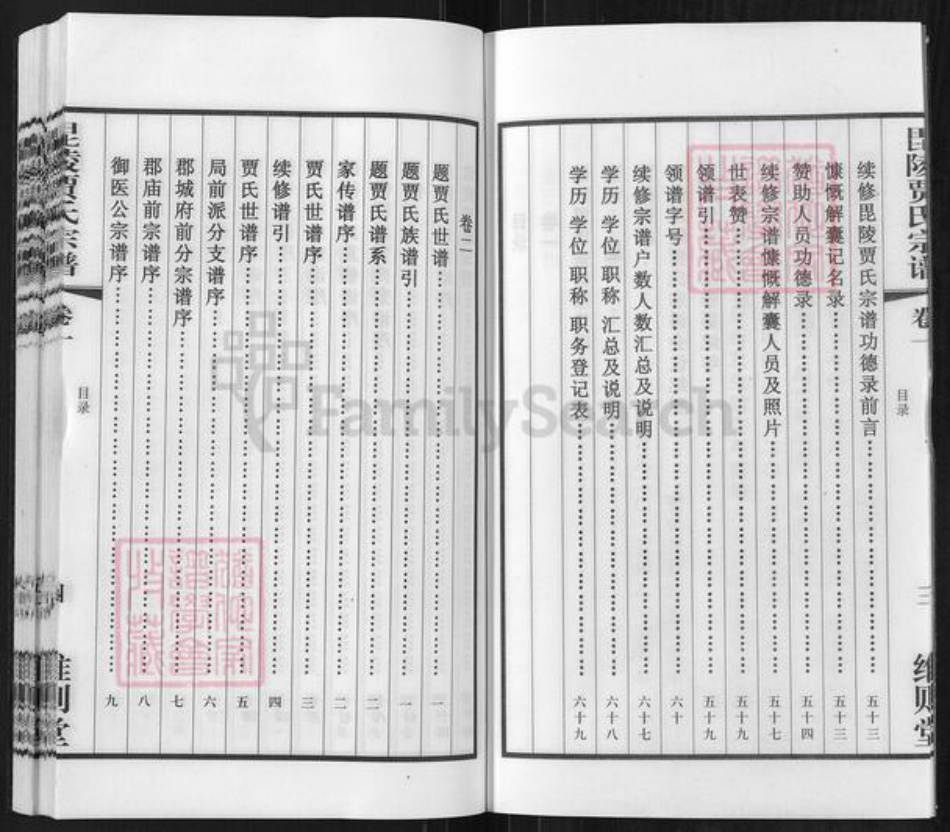 毘陵贾氏宗谱 卷一
目录
三
维则堂
续修毘陵贾氏宗谱功德录前言……五十三
慷慨解囊记名录……五十三
赞助人员功德录……五十四
续修宗谱慷慨解囊人员及照片……五十七
世表赞……五十九
领谱引……五十九
领谱字号……六十
续修宗谱户数人数汇总及说明……六十七
学历 学位 职称 汇总及说明……六十八
学历 学位 职称 职务登记表……六十九
卷二
题贾氏世谱……一
题贾氏族谱引……一
题贾氏谱系……二
家传谱序……二
贾氏世谱序……三
续修谱引……四
贾氏世谱序……五
局前派分支谱序……六
郡城府前分宗谱序……七
郡庙前宗谱序……八
御医公宗谱序……九
毘陵贾氏宗谱 卷一
目录
四
维则堂
FamilySearch